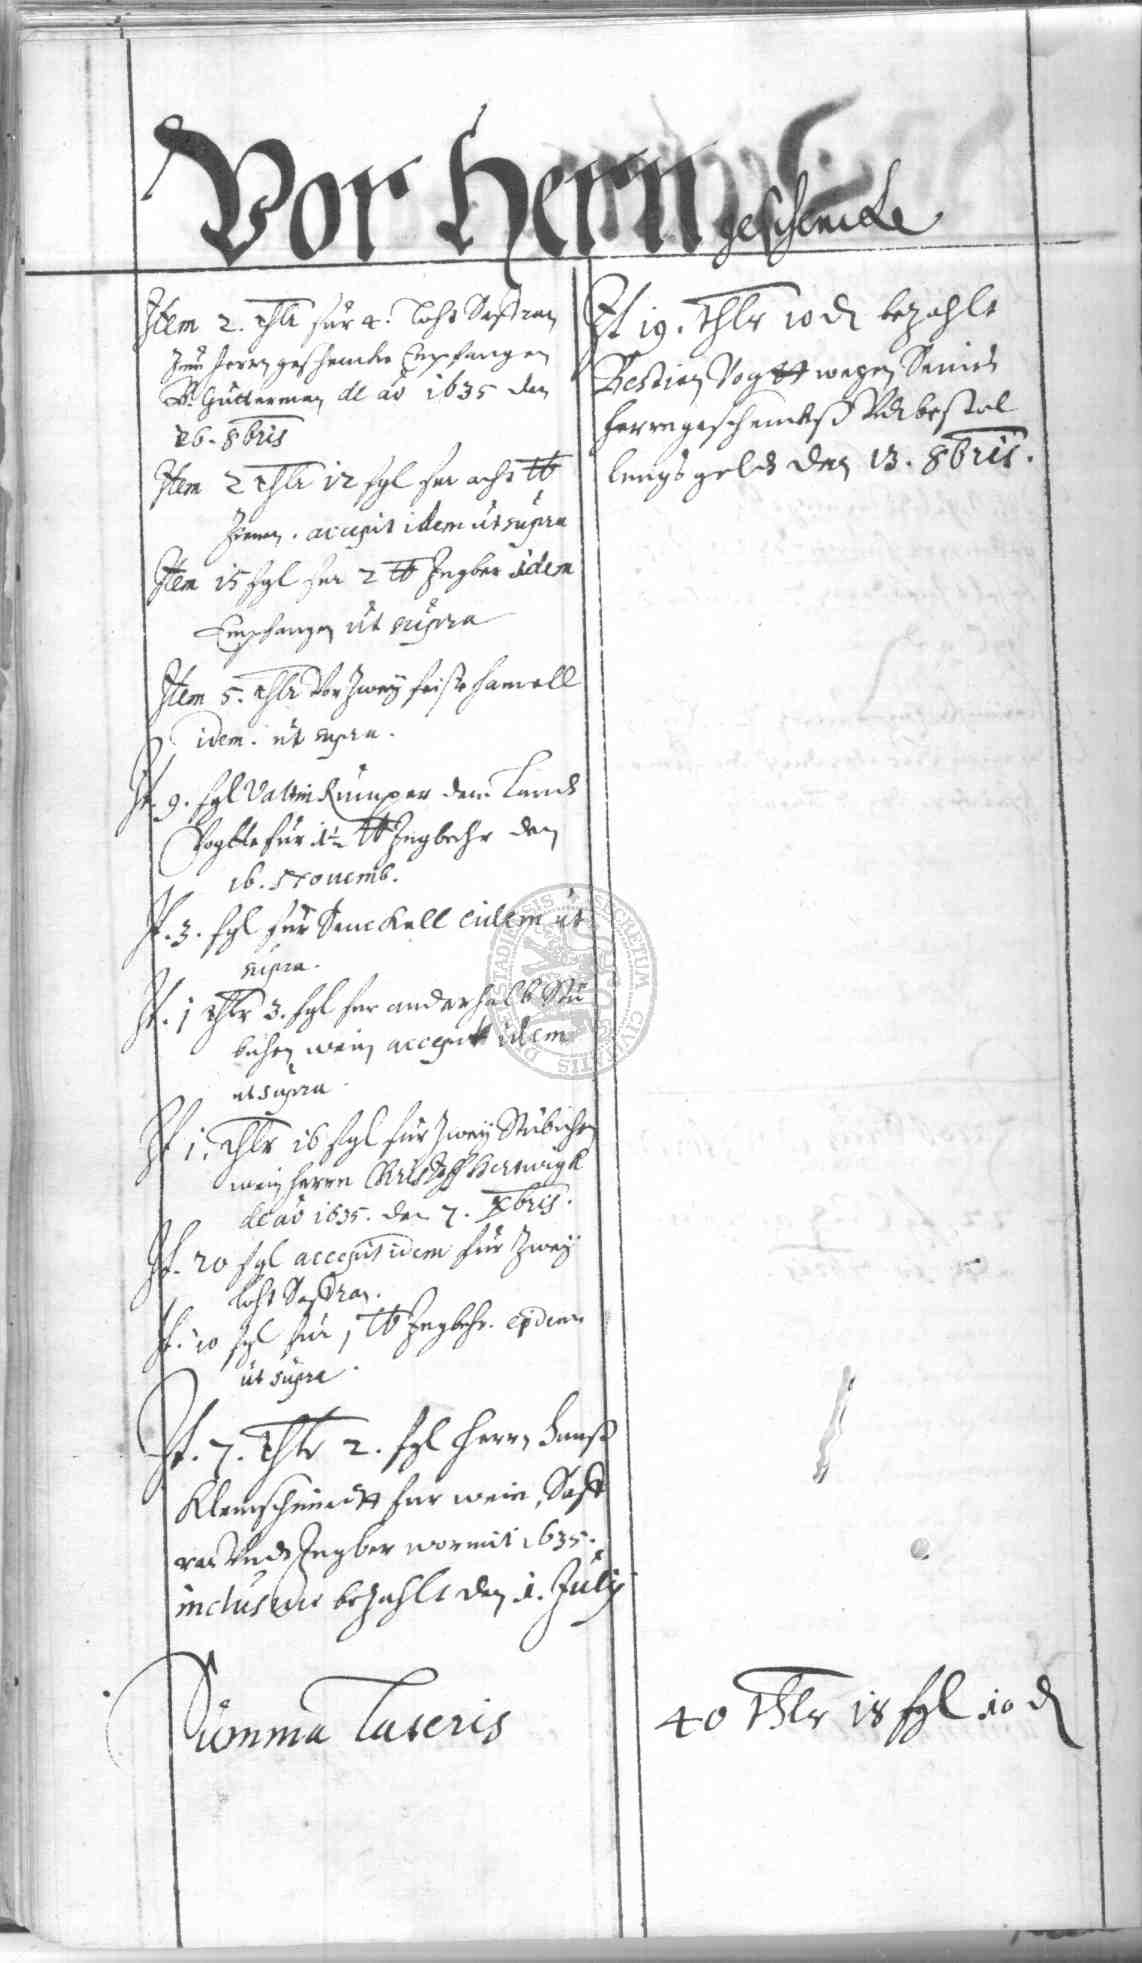 Vor Hern
geschencke
Item 2. thlr für 4. loht Saffran
Zum herren geschencke Empfangen
Gütterman de aõ 1635 den
26. 8bris
Item 2 thlr 12 sgl fur acht ℔
accepit idem ut supra
Item 15 sgl fur 2 ℔ Ingber idem
Empfangen ut supra
Item 5. thlr vor Zwey feiste hamell
idem. ut supra.
It. 9. sgl Valtin Kumper dem Landt
Vogtte für 1½ ℔ Ingbehr den
16. Novemb.
It. 3. sgl für Senckell eidem ut
supra.
It. 1 thlr 3. sgl fur anderhalb Stü
bichen wein accepit idem
ut supra.
It 1. thlr 16 sgl für Zwey Stübichen
wein herrn Christoff
de aõ 1635. den 7. Xbris.
It. 20 sgl accepit idem für Zwey
loht Saffran.
It. 10 sgl für 1 ℔ Ingbehr. eidem
ut supra.
It. 7. thlr 2. sgl herrn Hanß
Kleinschmidt fur wein, Saff
ran Undt Ingber wormit 1635.
inclusive bezahlt den 1. July
It 19. thlr 10 d bezahlt
Bastian Vogtt wegen
herrngeschenckß Vndt bestal
lungs geldt den 13. 8bris.
Summa Lateris 40 thlr 18 sgl 10 d
SECRETUM CIVITATIS